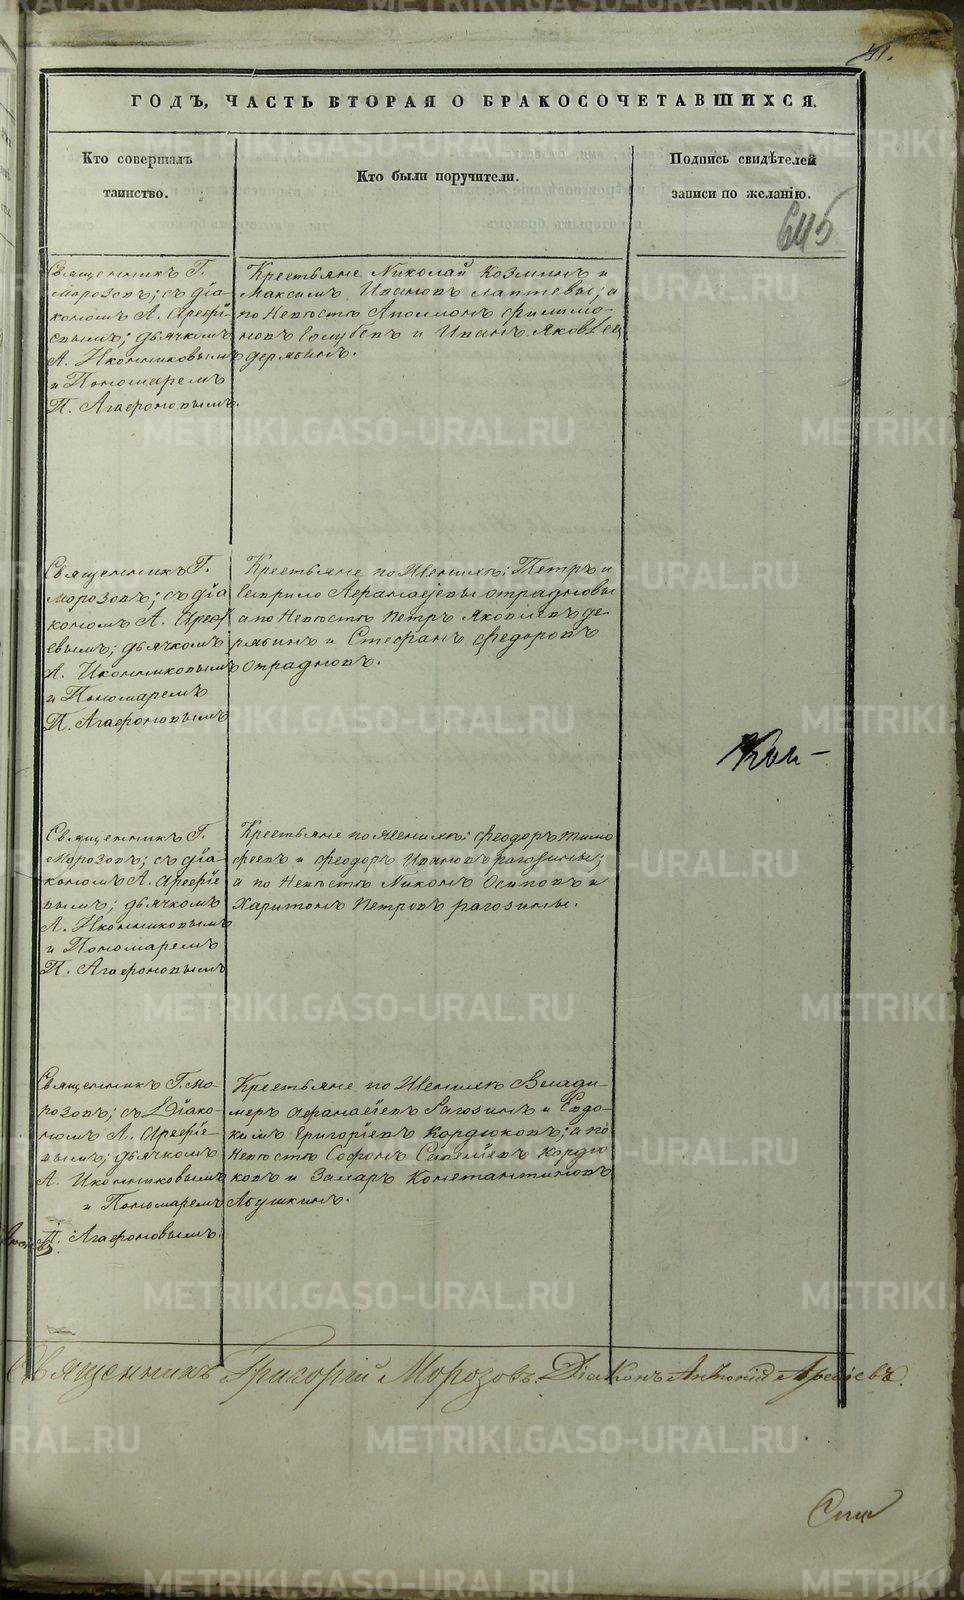 31.
ГОДЪ, ЧАСТЬ ВТОРАЯ О БРАКОСОЧЕТАВШИХСЯ.
Кто совершалъ
таинство.
Кто были поручители.
Подпись свидѣтелей
записи по желанію.
645
Священникъ Г.
Морозовъ; съ діа-
кономъ А. Арефі-
евымъ; дьячкомъ
А. Иконниковымъ
и Пономаремъ
П. Агафоновымъ.
Крестьяне Николай Козминъ и
Максимъ Ивановъ Лаптевы; а
по Невѣстѣ Аполлонъ Филимо-
новъ Голубевъ и Иванъ Яковлевъ
Дермбинъ.
Священникъ Г.
Морозовъ; съ діа
кономъ А. Ареф
евымъ; дьячкомъ
А. Иконниковымъ
и Пономаремъ
П. Агафоновымъ
Крестьяне по Женихѣ: Петръ и
Гаврило Афанасьевы Отрадновы
а по Невѣстѣ Петръ Яковлевъ Де
рмбинъ и Стефанъ Федоровъ
Отрадновъ.
Священникъ Г.
Морозовъ; съ діа-
кономъ А. Арефіе
вымъ; дьячкомъ
А. Иконниковымъ
и Пономаремъ
П. Агафоновымъ
Крестьяне по Женихѣ: Феодоръ Тимо
феевъ и Феодоръ Ивановъ Рагозины;
а по Невѣстѣ Никонъ Осиповъ и
Харитонъ Петровъ Рагозины.
Священникъ Г. Мо-
розовъ; съ Діако-
номъ А. Арефіе-
вымъ; дьячкомъ
А. Иконниковымъ
и Пономаремъ
П. Агафоновымъ.
Крестьяне по Женихѣ Влади-
меръ Афанасіевъ Рагозинъ и Евдо-
кимъ Григоріевъ Кордюковъ; а по
Невѣстѣ Софонъ Савеліевъ Кордю
ковъ и Захаръ Константиновъ
Абушкинъ.
Священникъ Григорій Морозовъ. Діаконъ Антоній Арефіевъ.
METRIKI.GASO-URAL.RU